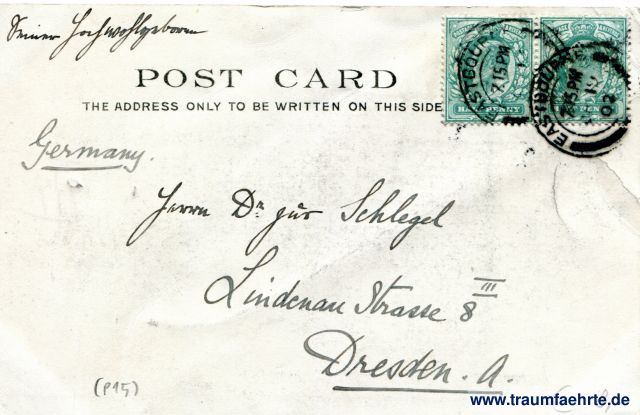 Seiner Hochwohlgeboren
POST CARD
THE ADDRESS ONLY TO BE WRITTEN ON THIS SIDE
HALFPENNY
EASTBOURNE
7.15 PM
EASTBOURNE
7.15 PM
02
Germany.
Herrn Dr jur Schlegel
Lindenau Strasse 8 III
Dresden. A.
(P15)
www.traumfaehrte.de